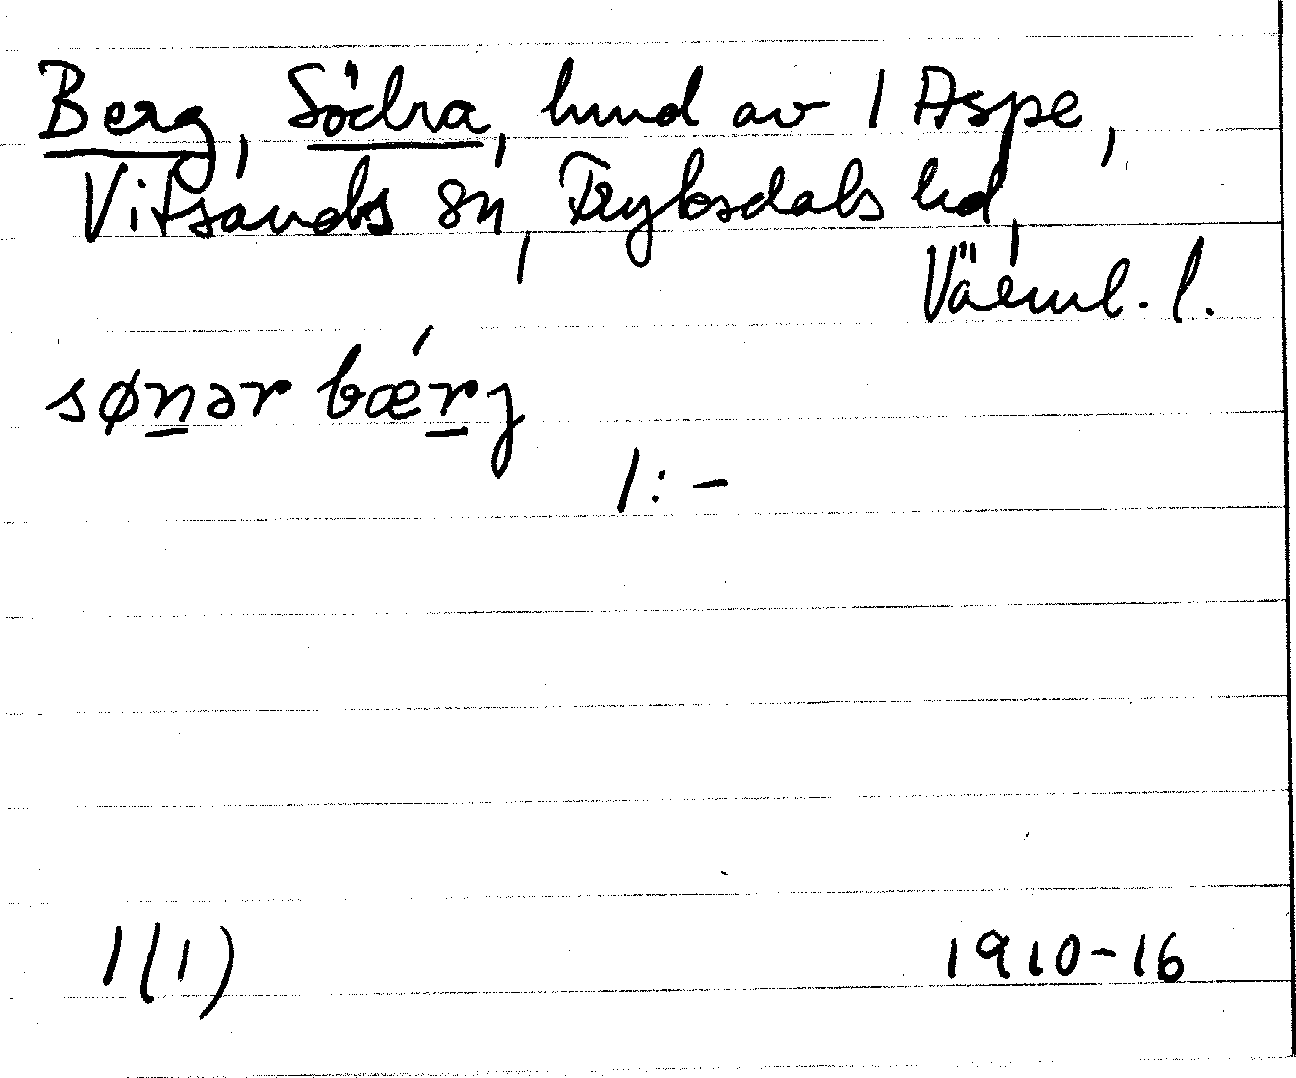 Berg, Södra, hmd av 1 Aspe,
Vitsands sn, Fryksdals hd,
Värml. l.
sønər bǽrj
1:-
1(1) 1910-16